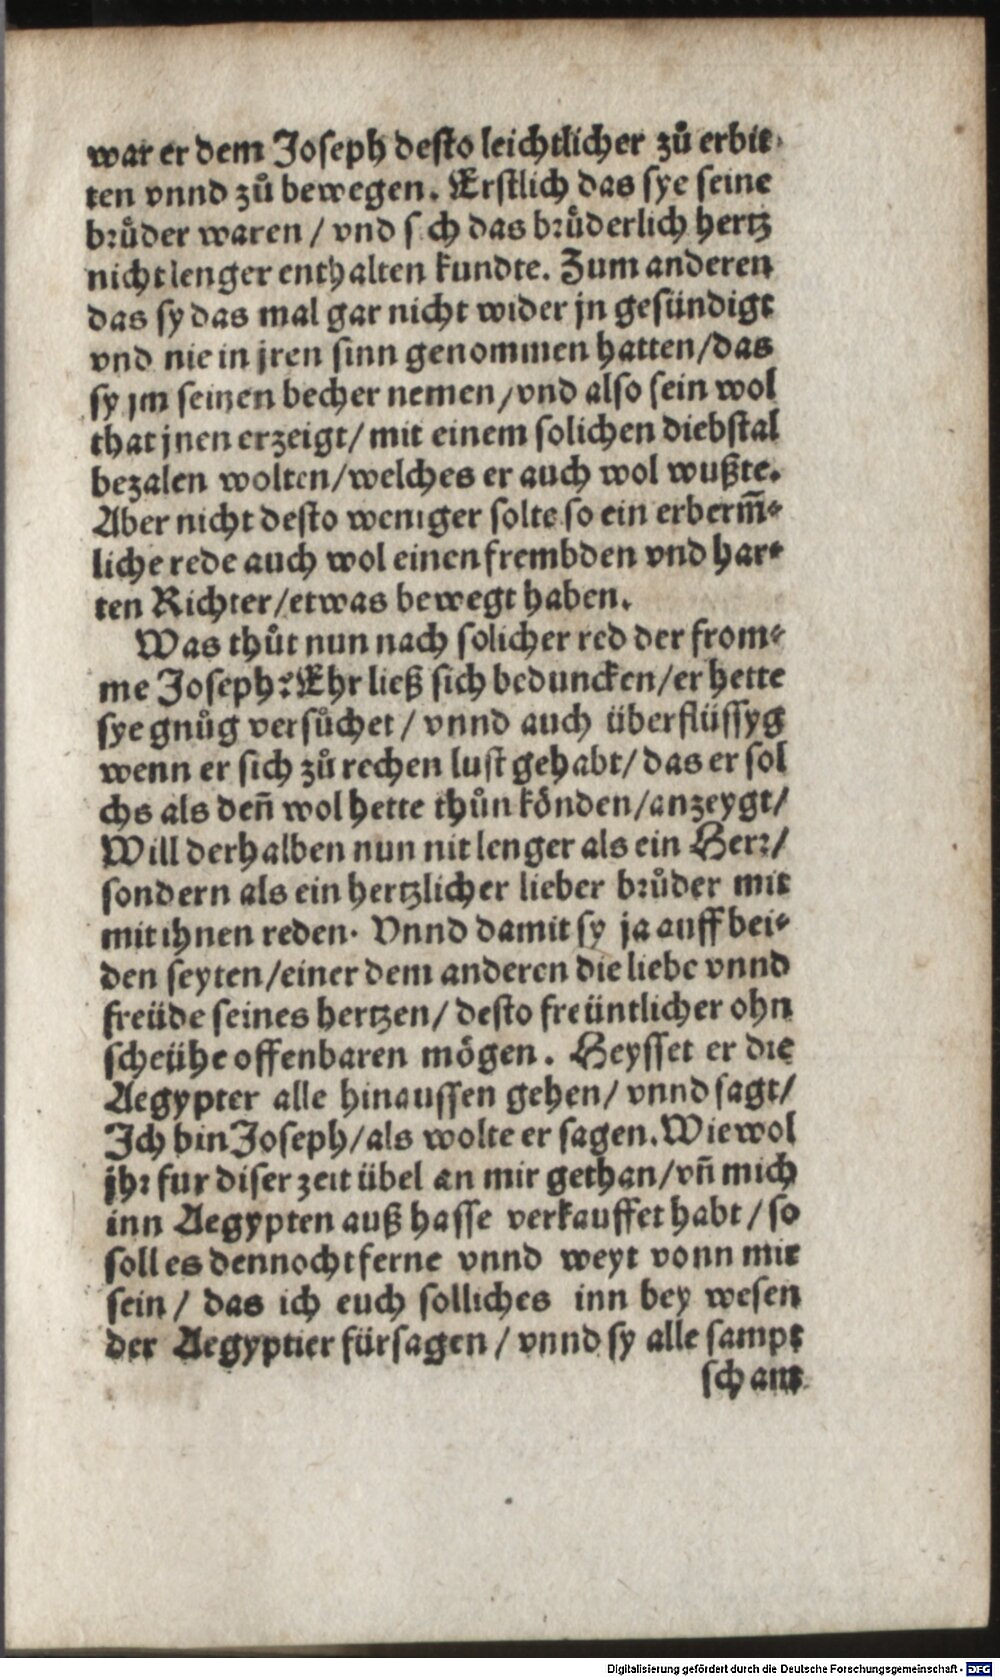 war er dem Joseph desto leichtlicher zů erbit-
ten vnnd zů bewegen. Erstlich das sye seine
brůder waren / vnd sich das brůderlich hertz
nicht lenger enthalten kundte. Zum anderen
das sy das mal gar nicht wider jn gesündigt
vnd nie in jren sinn genommen hatten/das
sy jm seinen becher nemen/vnd also sein wol
that jnen erzeigt/ mit einem solichen diebstal
bezalen wolten/welches er auch wol wußte.
Aber nicht desto weniger solte so ein erberm̄-
liche rede auch wol einen frembden vnd har-
ten Richter/etwas bewegt haben.
Was thůt nun nach solicher red der from-
me Joseph? Ehr ließ sich beduncken/er hette
sye gnůg versůchet / vnnd auch überflüssyg
wenn er sich zů rechen lust gehabt/ das er sol
chs als deñ wol hette thůn könden/anzeygt/
Will derhalben nun nit lenger als ein Herr/
sondern als ein hertzlicher lieber brůder mit
mit ihnen reden. Vnnd damit sy ja auff bei-
den seyten/einer dem anderen die liebe vnnd
freüde seines hertzen/ desto freüntlicher ohn
scheühe offenbaren mögen. Heysset er die
Aegypter alle hinaussen gehen/ vnnd sagt/
Ich bin Joseph/als wolte er sagen. Wiewol
jhr fur diser zeit übel an mir gethan/vñ mich
inn Aegypten auß hasse verkauffet habt / so
soll es dennocht ferne vnnd weyt vonn mir
sein / das ich euch solliches inn bey wesen
der Aegyptier fürsagen / vnnd sy alle sampt
scham
Digitalisierung gefördert durch die Deutsche Forschungsgemeinschaft - DFG